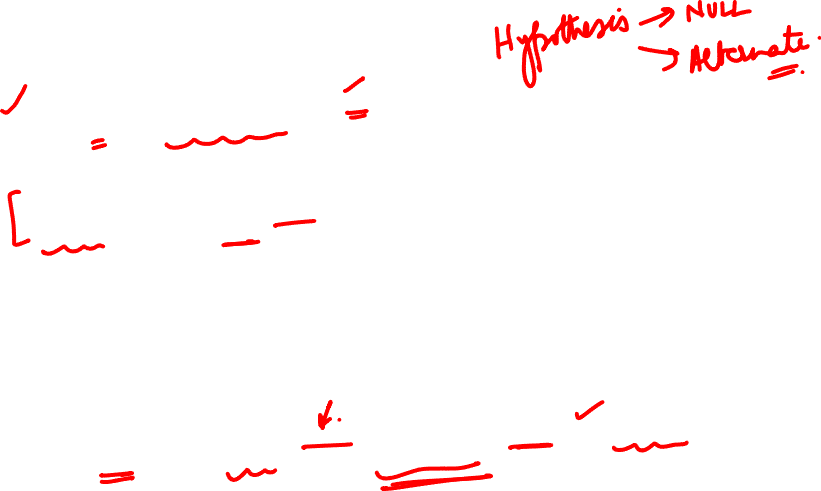 Hypothesis → NULL
→ Alternate.